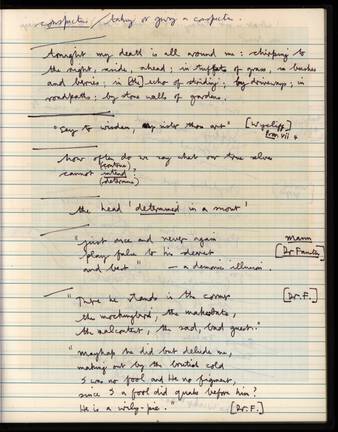 conspectus / taking or giving a conspectus.
tonight my death is all around me : chirping to
the right, inside, ahead ; in tuffets of grass, in bushes
and berries ; in [the] echo of ; by driveways ; in
roadpaths ; by stone walls of gardens.
"Say to wisdom, my sister thou art" [Wycliff
Prov. vii 4
how often do we say what our true selves
(continue)
cannot intend?
(determine)
the head 'determined in a snout'
"just once and never again
Mann
play false to his dearest
[Dr Faustus]
and best" — a demonic illusion.
"There he stands in the corner
[Dr. F.]
the mockingbird, the makebate,
the malcontent, the sad, bad guest."
"mayhap he did but delude me,
making out by the brutish cold
I was no fool and He no figment,
since I a fool did quake before him?
He is a wily-pie."
[Dr. F.]